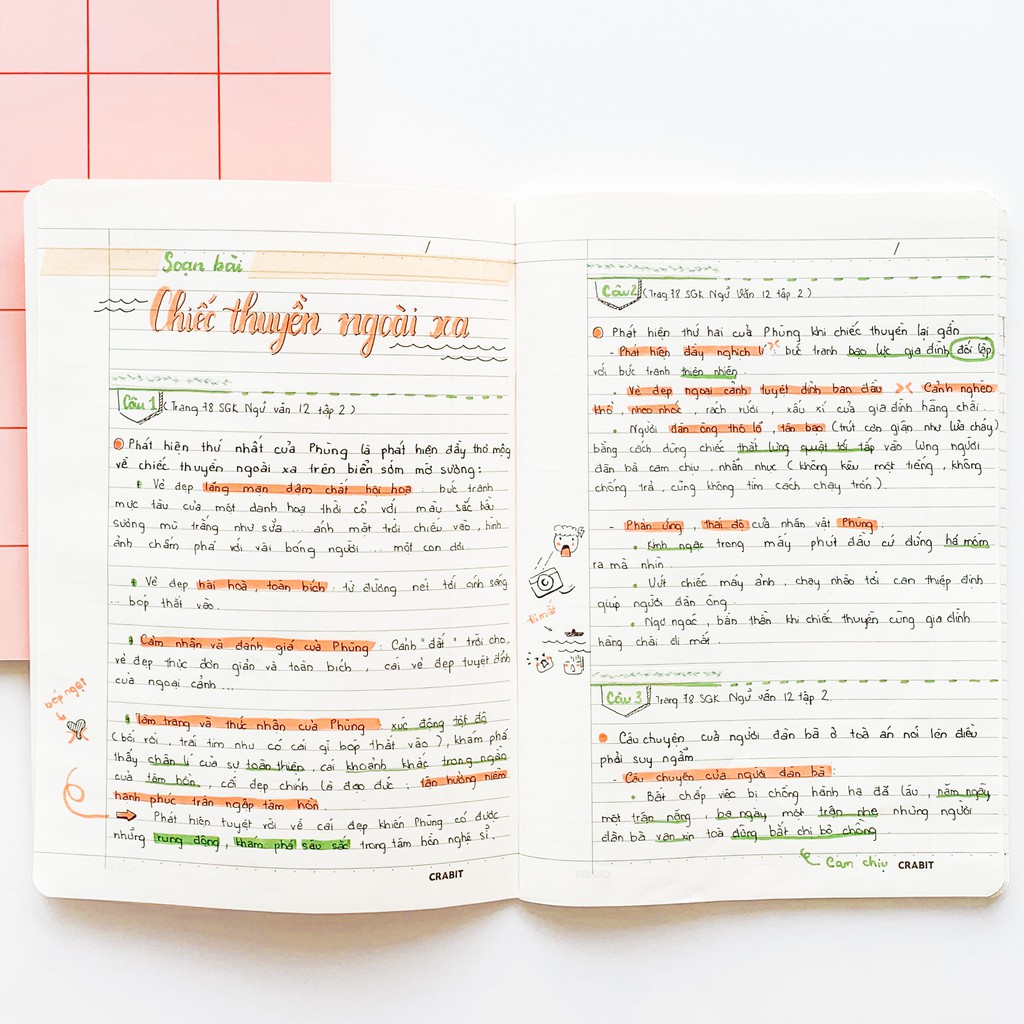 /
Soạn bài
Chiếc thuyền ngoài xa
Câu 1 (Trang 78 SGK Ngữ văn 12 tập 2)
Phát hiện thứ nhất của Phùng là phát hiện đầy thơ mộng
về chiếc thuyền ngoài xa trên biển sớm mờ sương:
Vẻ đẹp lãng mạn đậm chất hội hoạ : bức tranh
mực tàu của một danh hoạ thời cổ với màu sắc bầu
sương mù trắng như sữa ... ánh mặt trời chiếu vào, hình
ảnh chấm phá với vài bóng người ... một con dơi.
Vẻ đẹp hài hoà, toàn bích : từ đường nét tới ánh sáng
... bóp thắt vào.
Cảm nhận và đánh giá của Phùng : Cảnh "đắt" trời cho,
vẻ đẹp thực đơn giản và toàn bích, cái vẻ đẹp tuyệt đỉnh
của ngoại cảnh ...
bóp nghẹt
Tâm trạng và thức nhận của Phùng xúc động tột độ
(bối rối, trái tim như có cái gì bóp thắt vào), khám phá
thấy chân lí của sự toàn thiện, cái khoảnh khắc trong ngần
của tâm hồn, cái đẹp chính là đạo đức : tận hưởng niềm
hạnh phúc tràn ngập tâm hồn.
Phát hiện tuyệt vời về cái đẹp khiến Phùng có được
những rung động, khám phá sâu sắc trong tâm hồn nghệ sĩ.
CRABIT
/
Câu 2 (Trang 78 SGK Ngữ Văn 12 tập 2)
Phát hiện thứ hai của Phùng khi chiếc thuyền lại gần
- Phát hiện đầy nghịch lí : bức tranh bạo lực gia đình đối lập
với bức tranh thiên nhiên.
Vẻ đẹp ngoại cảnh tuyệt đỉnh ban đầu >< Cảnh nghèo
khổ, nheo nhóc, rách rưới, xấu xí của gia đình hàng chài.
Người đàn ông thô lỗ, tàn bạo (trút cơn giận như lửa cháy)
bằng cách dùng chiếc thắt lưng quật tới tấp vào lưng người
đàn bà cam chịu, nhẫn nhục (không kêu một tiếng, không
chống trả, cũng không tìm cách chạy trốn).
- Phản ứng, thái độ của nhân vật Phùng :
Kinh ngạc trong mấy phút đầu cứ đứng há mồm
ra mà nhìn.
Vứt chiếc máy ảnh, chạy nhào tới can thiệp định
giúp người đàn ông.
Ngơ ngác, bần thần khi chiếc thuyền cùng gia đình
hàng chài đi mất.
đi mất
Câu 3 Trang 78 SGK Ngữ văn 12 tập 2.
Câu chuyện của người đàn bà ở toà án nói lên điều
phải suy ngẫm
- Câu chuyện của người đàn bà :
Bất chấp việc bị chồng hành hạ đã lâu, năm ngày
một trận nặng, ba ngày một trận nhẹ nhưng người
đàn bà van xin toà đừng bắt chị bỏ chồng.
Cam chịu
CRABIT